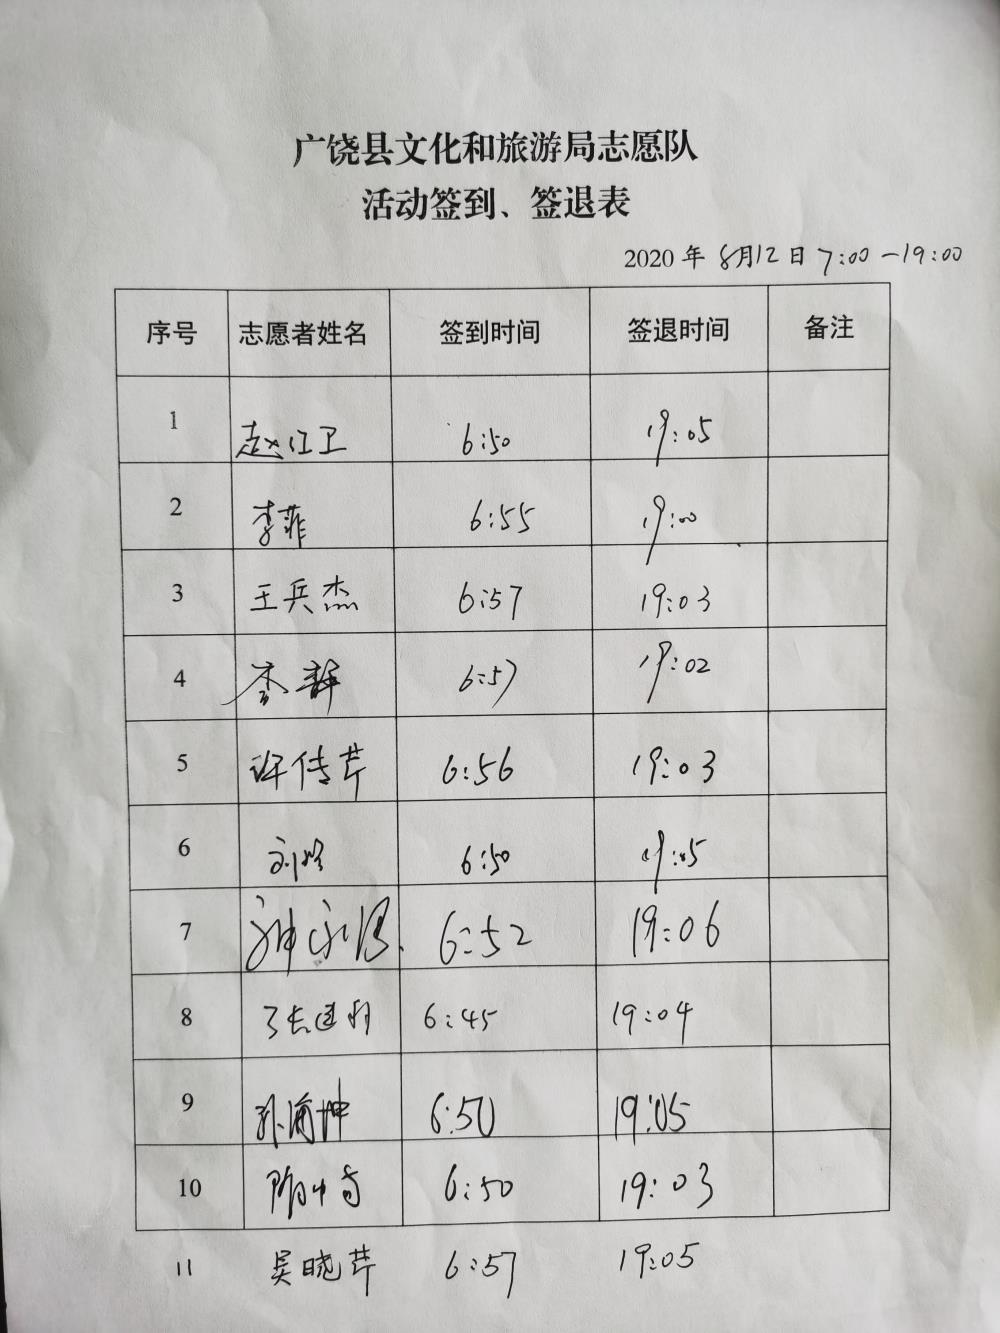 广饶县文化和旅游局志愿队
活动签到、签退表
2020 年 8月12日 7:00-19:00
序号 志愿者姓名 签到时间 签退时间 备注
1 赵江卫 6:50 19:05
2 李菲 6:55 19:00
3 王兵杰 6:57 19:03
4 李静 6:57 19:02
5 许传芹 6:56 19:03
6 刘 6:50 19:05
7 6:52 19:06
8 张建利 6:45 19:04
9 孙 坤 6:50 19:05
10 隋 6:50 19:03
11 吴晓芹 6:57 19:05